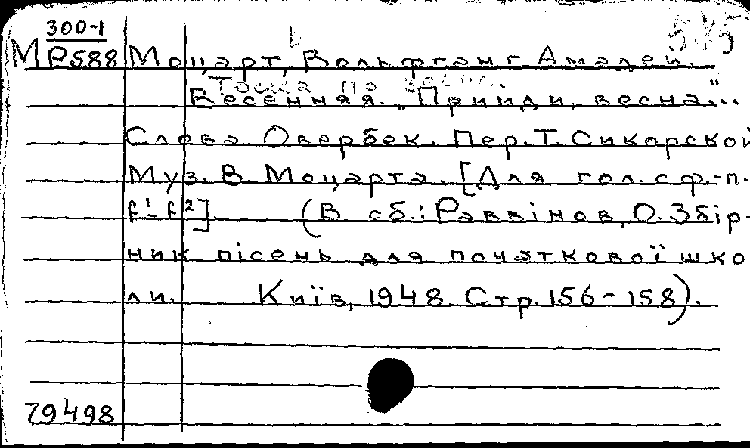 300-1
М Р588 Моцарт, Вольфганг Амадей. 575
Тоска по весне.
Весенняя. „Прийди, весна"...
Слова Овербек. Пер. Т. Сикорской
Муз. В. Моцарта. [Для гол. с ф.-п.
f¹-f²]. (В сб.: Раввінов, О. Збір-
ник пісень для початкової шко
ли. Київ, 1948. Стр. 156-158).
79498